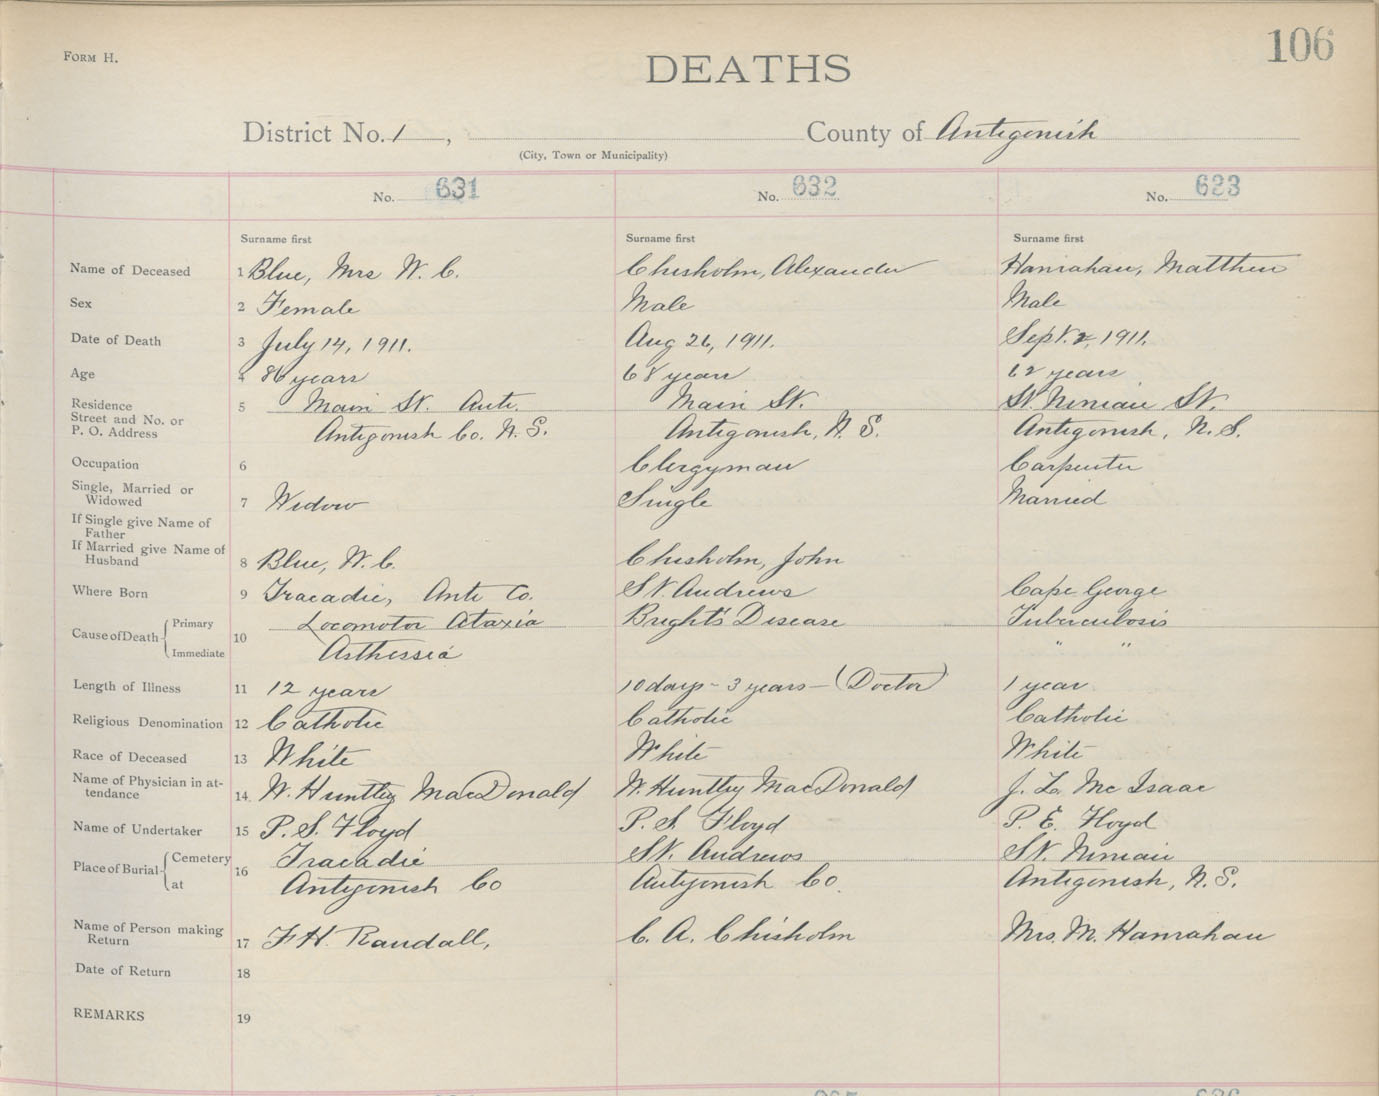 106
FORM H.
DEATHS
District No. 1, County of Antigonish
(City, Town or Municipality)
No. 631 No. 632 No. 623
Surname first Surname first Surname first
Name of Deceased 1 Blue, Mrs W. C. Chisholm, Alexander Hanrahan, Matthew
Sex 2 Female Male Male
Date of Death 3 July 14, 1911. Aug 26, 1911. Sept. 2, 1911.
Age 4 86 years 68 years 62 years
Residence
Street and No. or
P. O. Address
5 Main St. Anti. Main St. St. Ninian St.
Antigonish Co. N. S. Antigonish, N. S. Antigonish, N. S.
Occupation 6 Clergyman Carpenter
Single, Married or
Widowed 7 Widow Single Married
If Single give Name of
Father
If Married give Name of
Husband 8 Blue, W. C. Chisholm, John
Where Born 9 Tracadie, Ant. Co. St. Andrews Cape George
Cause of Death Primary 10 Locomotor Ataxia Bright's Disease Tuberculosis
Immediate " "
Length of Illness 11 12 years 10 days - 3 years - (Doctor) 1 year
Religious Denomination 12 Catholic Catholic Catholic
Race of Deceased 13 White White White
Name of Physician in at-
tendance 14 W. Huntley MacDonald W. Huntley MacDonald J. L. McIsaac
Name of Undertaker 15 P. S. Floyd P. S. Floyd P. E. Floyd
Place of Burial Cemetery 16 Tracadie St. Andrews St. Ninian
at Antigonish Co Antigonish Co. Antigonish, N. S.
Name of Person making
Return 17 F. H. Randall, C. A. Chisholm Mrs. M. Hanrahan
Date of Return 18
REMARKS 19